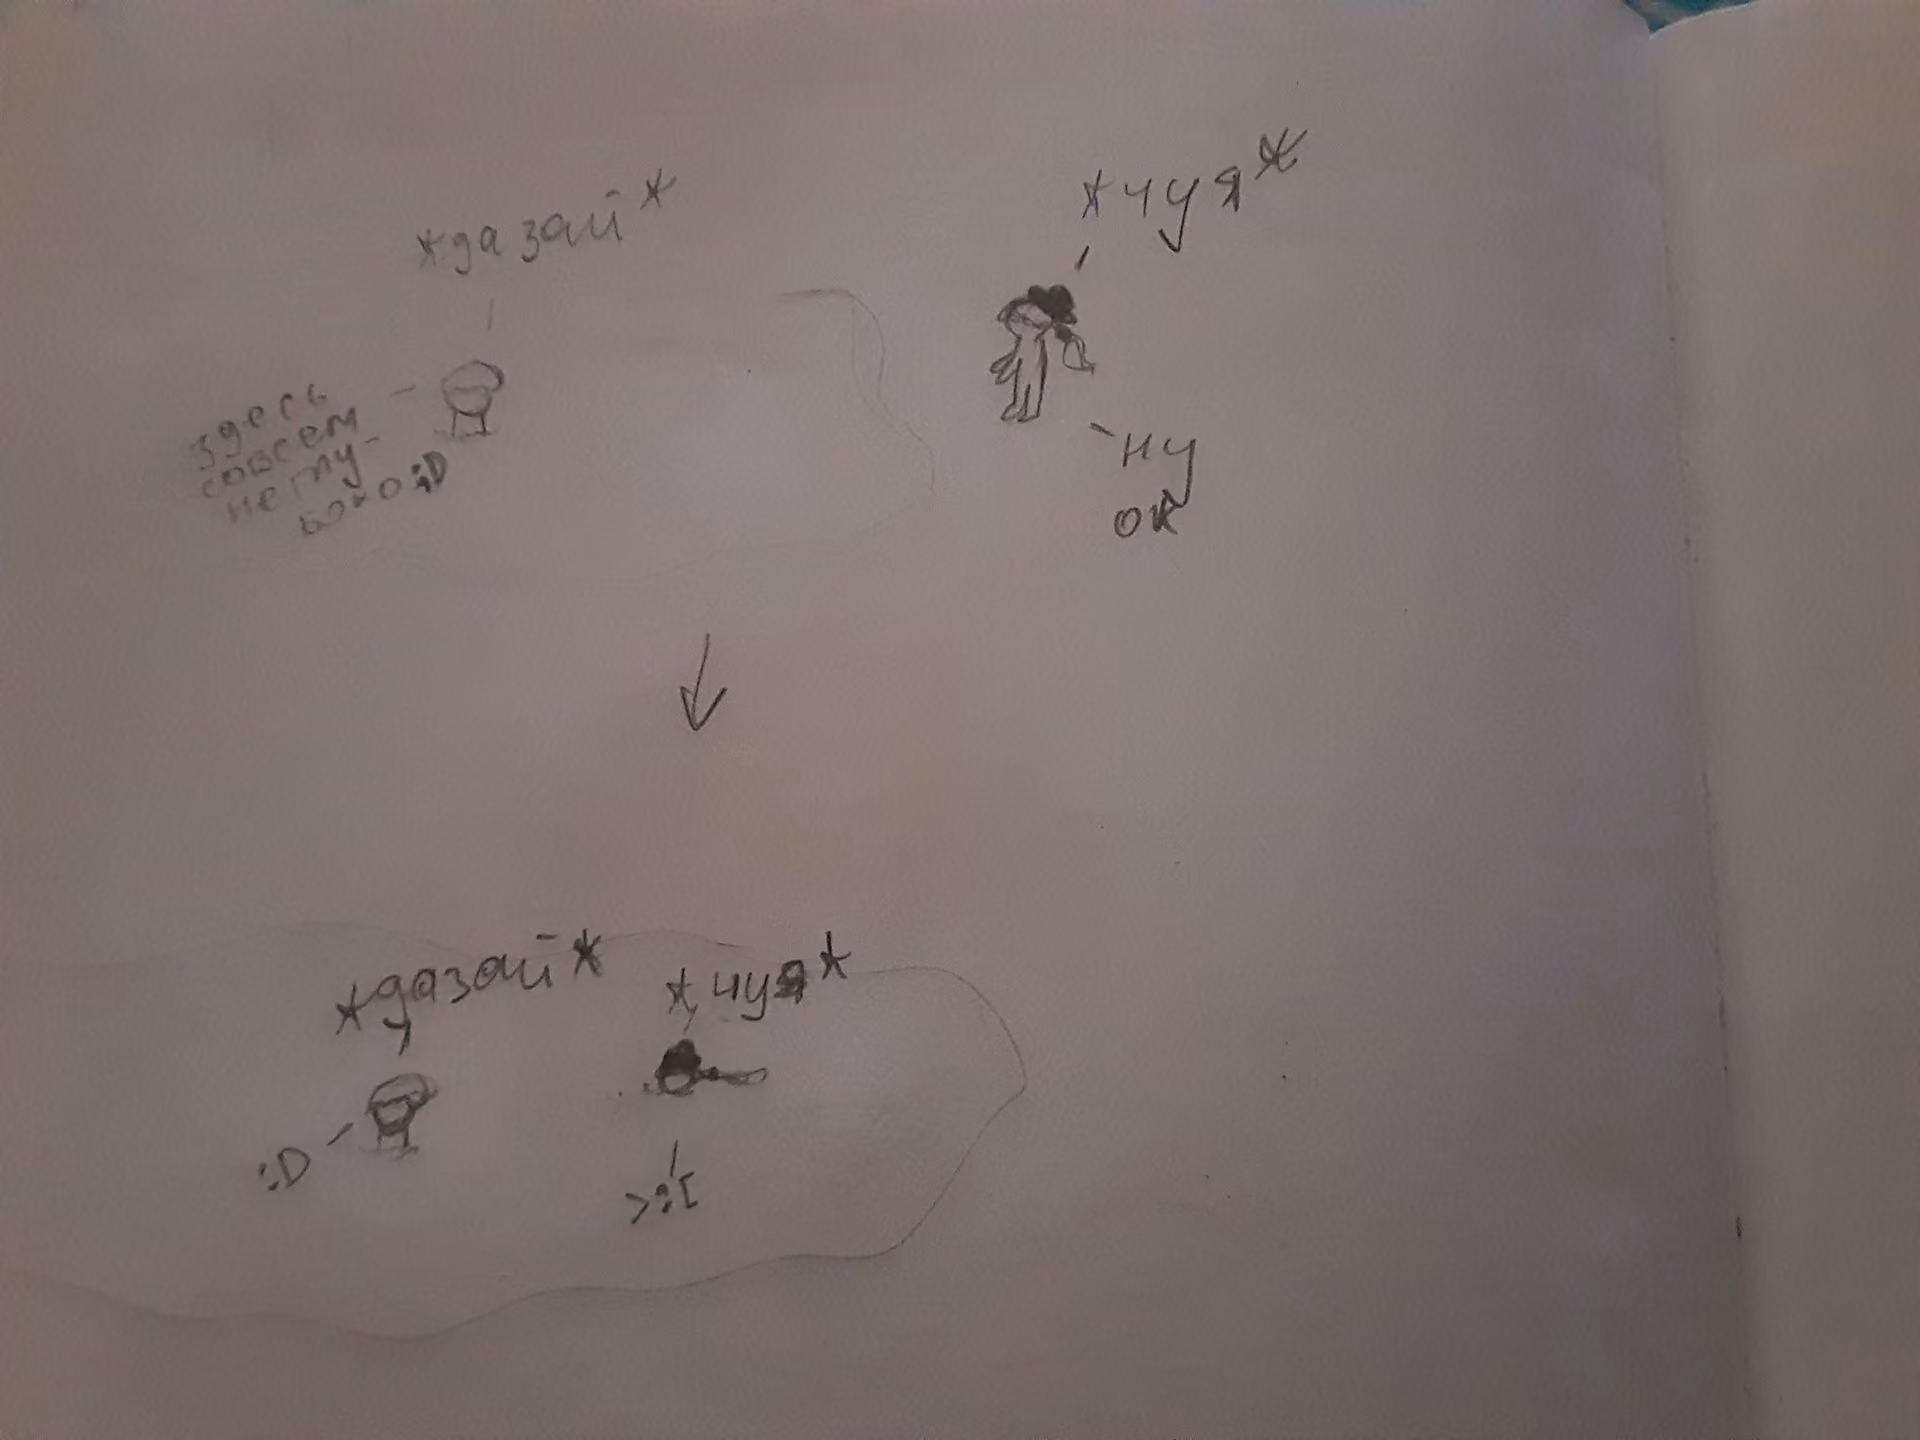 *дазай*
*чуя*
здесь
совсем
неглу-
боко :D
ну
ок
*дазай*
*чуя*
:D
>:[